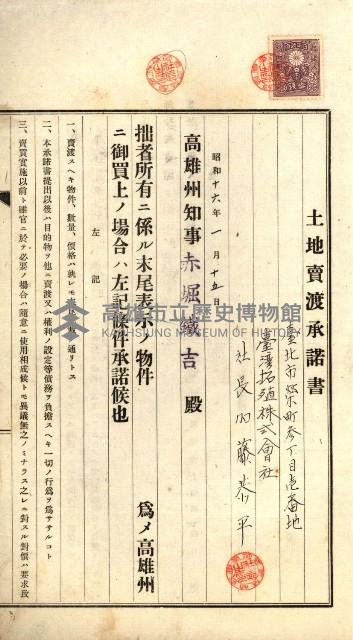 土地賣渡承諾書
臺北市榮町參丁目壱番地
臺灣拓殖株式會社
社長加藤恭平
昭和十六年一月十五日
高雄州知事赤堀鐵吉殿
拙者所有ニ係ル末尾表示ノ物件
爲メ高雄州
ニ御買上ノ場合ハ左記條件承諾候也
左記
一、賣渡スヘキ物件、數量、價格ハ孰レモ
通リトス
二、本承諾書提出以後ハ目的物ヲ他ニ賣渡又ハ權利ノ設定等債務ヲ負擔スヘキ一切ノ行爲ヲ爲ササルコト
三、賣買實施以前ト雖官ニ於テ必要ノ場合ハ隨意ニ使用相成候トモ異議無之ノミナラス之レニ對スル對價ハ要求致
高雄市立歷史博物館
KAOHSIUNG MUSEUM OF HISTORY